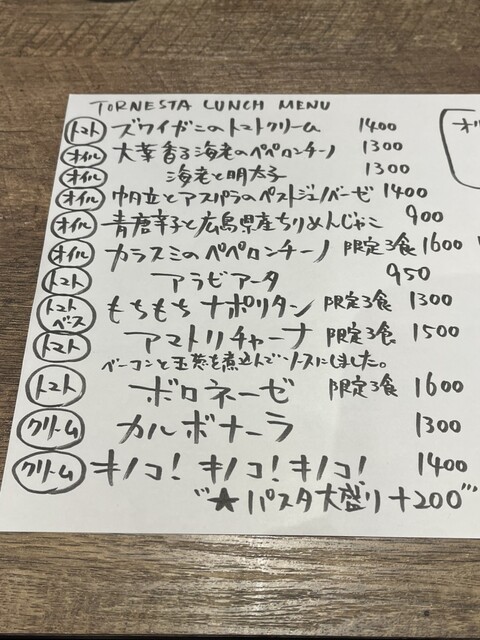 TORNESTA LUNCH MENU
トマト ズワイガニのトマトクリーム 1400
オイル 大葉香る海老のペペロンチーノ 1300
オイル 海老と明太子 1300
オイル 帆立とアスパラのペストジェノバーゼ 1400
オイル 青唐辛子と広島県産ちりめんじゃこ 900
オイル カラスミのペペロンチーノ 限定3食 1600
トマト アラビアータ 950
トマトベース もちもちナポリタン 限定3食 1300
トマト アマトリチャーナ 限定3食 1500
ベーコンと玉葱を煮込んでソースにしました。
トマト ボロネーゼ 限定3食 1600
クリーム カルボナーラ 1300
クリーム キノコ！キノコ！キノコ！ 1400
★パスタ大盛り+200